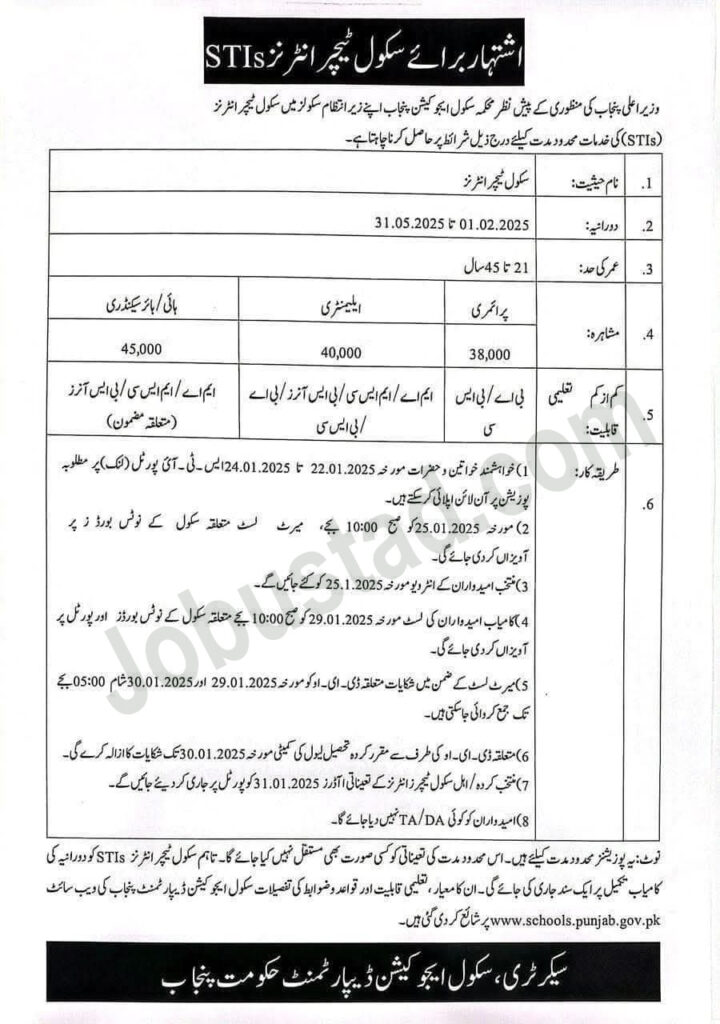 اشتہار برائے سکول ٹیچر انٹرنز STIs
وزیر اعلی پنجاب کی منظوری کے پیش نظر محکمہ سکول ایجوکیشن پنجاب اپنے زیر انتظام سکولز میں سکول ٹیچر انٹرنز
(STIs) کی خدمات محدود مدت کیلئے درج ذیل شرائط پر حاصل کرنا چاہتا ہے۔
1. نام حیثیت: سکول ٹیچر انٹرنز
2. دورانیہ: 01.02.2025 تا 31.05.2025
3. عمر کی حد: 21 تا 45 سال
4. مشاہرہ: پرائمری ایلیمنٹری ہائی/ہائر سیکنڈری
38,000 40,000 45,000
5. کم از کم تعلیمی بی اے/بی ایس ایم اے/ایم ایس سی/بی ایس آنرز/بی اے ایم اے/ایم ایس سی/بی ایس آنرز
قابلیت: سی /بی ایس سی (متعلقہ مضمون)
6. طریقہ کار: 1) خواہشمند خواتین و حضرات مورخہ 22.01.2025 تا 24.01.2025 ایس-ٹی-آئی پورٹل (لنک) پر مطلوبہ
پوزیشن پر آن لائن اپلائی کر سکتے ہیں۔
2) مورخہ 25.01.2025 کو صبح 10:00 بجے، میرٹ لسٹ متعلقہ سکول کے نوٹس بورڈز پر
آویزاں کر دی جائے گی۔
3) منتخب امیدواران کے انٹرویو مورخہ 25.1.2025 کو کئے جائیں گے۔
4) کامیاب امیدواران کی لسٹ مورخہ 29.01.2025 کو صبح 10:00 بجے متعلقہ سکول کے نوٹس بورڈز اور پورٹل پر
آویزاں کر دی جائے گی۔
5) میرٹ لسٹ کے ضمن میں شکایات متعلقہ ڈی-ای-او کو مورخہ 29.01.2025 اور 30.01.2025 شام 05:00 بجے
تک جمع کروائی جا سکتی ہیں۔
6) متعلقہ ڈی-ای-او کی طرف سے مقرر کردہ تحصیل لیول کی کمیٹی مورخہ 30.01.2025 تک شکایات کا ازالہ کرے گی۔
7) منتخب کردہ/اہل سکول ٹیچرز انٹرنز کے تعیناتی آڈرز 31.01.2025 کو پورٹل پر جاری کر دیئے جائیں گے۔
8) امیدواران کو کوئی TA/DA نہیں دیا جائے گا۔
نوٹ: یہ پوزیشنز محدود مدت کیلئے ہیں۔ اس محدود مدت کی تعیناتی کو کسی صورت بھی مستقل نہیں کیا جائے گا۔ تاہم سکول ٹیچر انٹرنز STIs کو دورانیہ کی
کامیاب تکمیل پر ایک سند جاری کی جائے گی۔ ان کا معیار، تعلیمی قابلیت اور قواعد و ضوابط کی تفصیلات سکول ایجوکیشن ڈیپارٹمنٹ پنجاب کی ویب سائٹ
www.schools.punjab.gov.pk پر شائع کر دی گئی ہیں۔
سیکرٹری، سکول ایجوکیشن ڈیپارٹمنٹ حکومت پنجاب
Jobustad.com